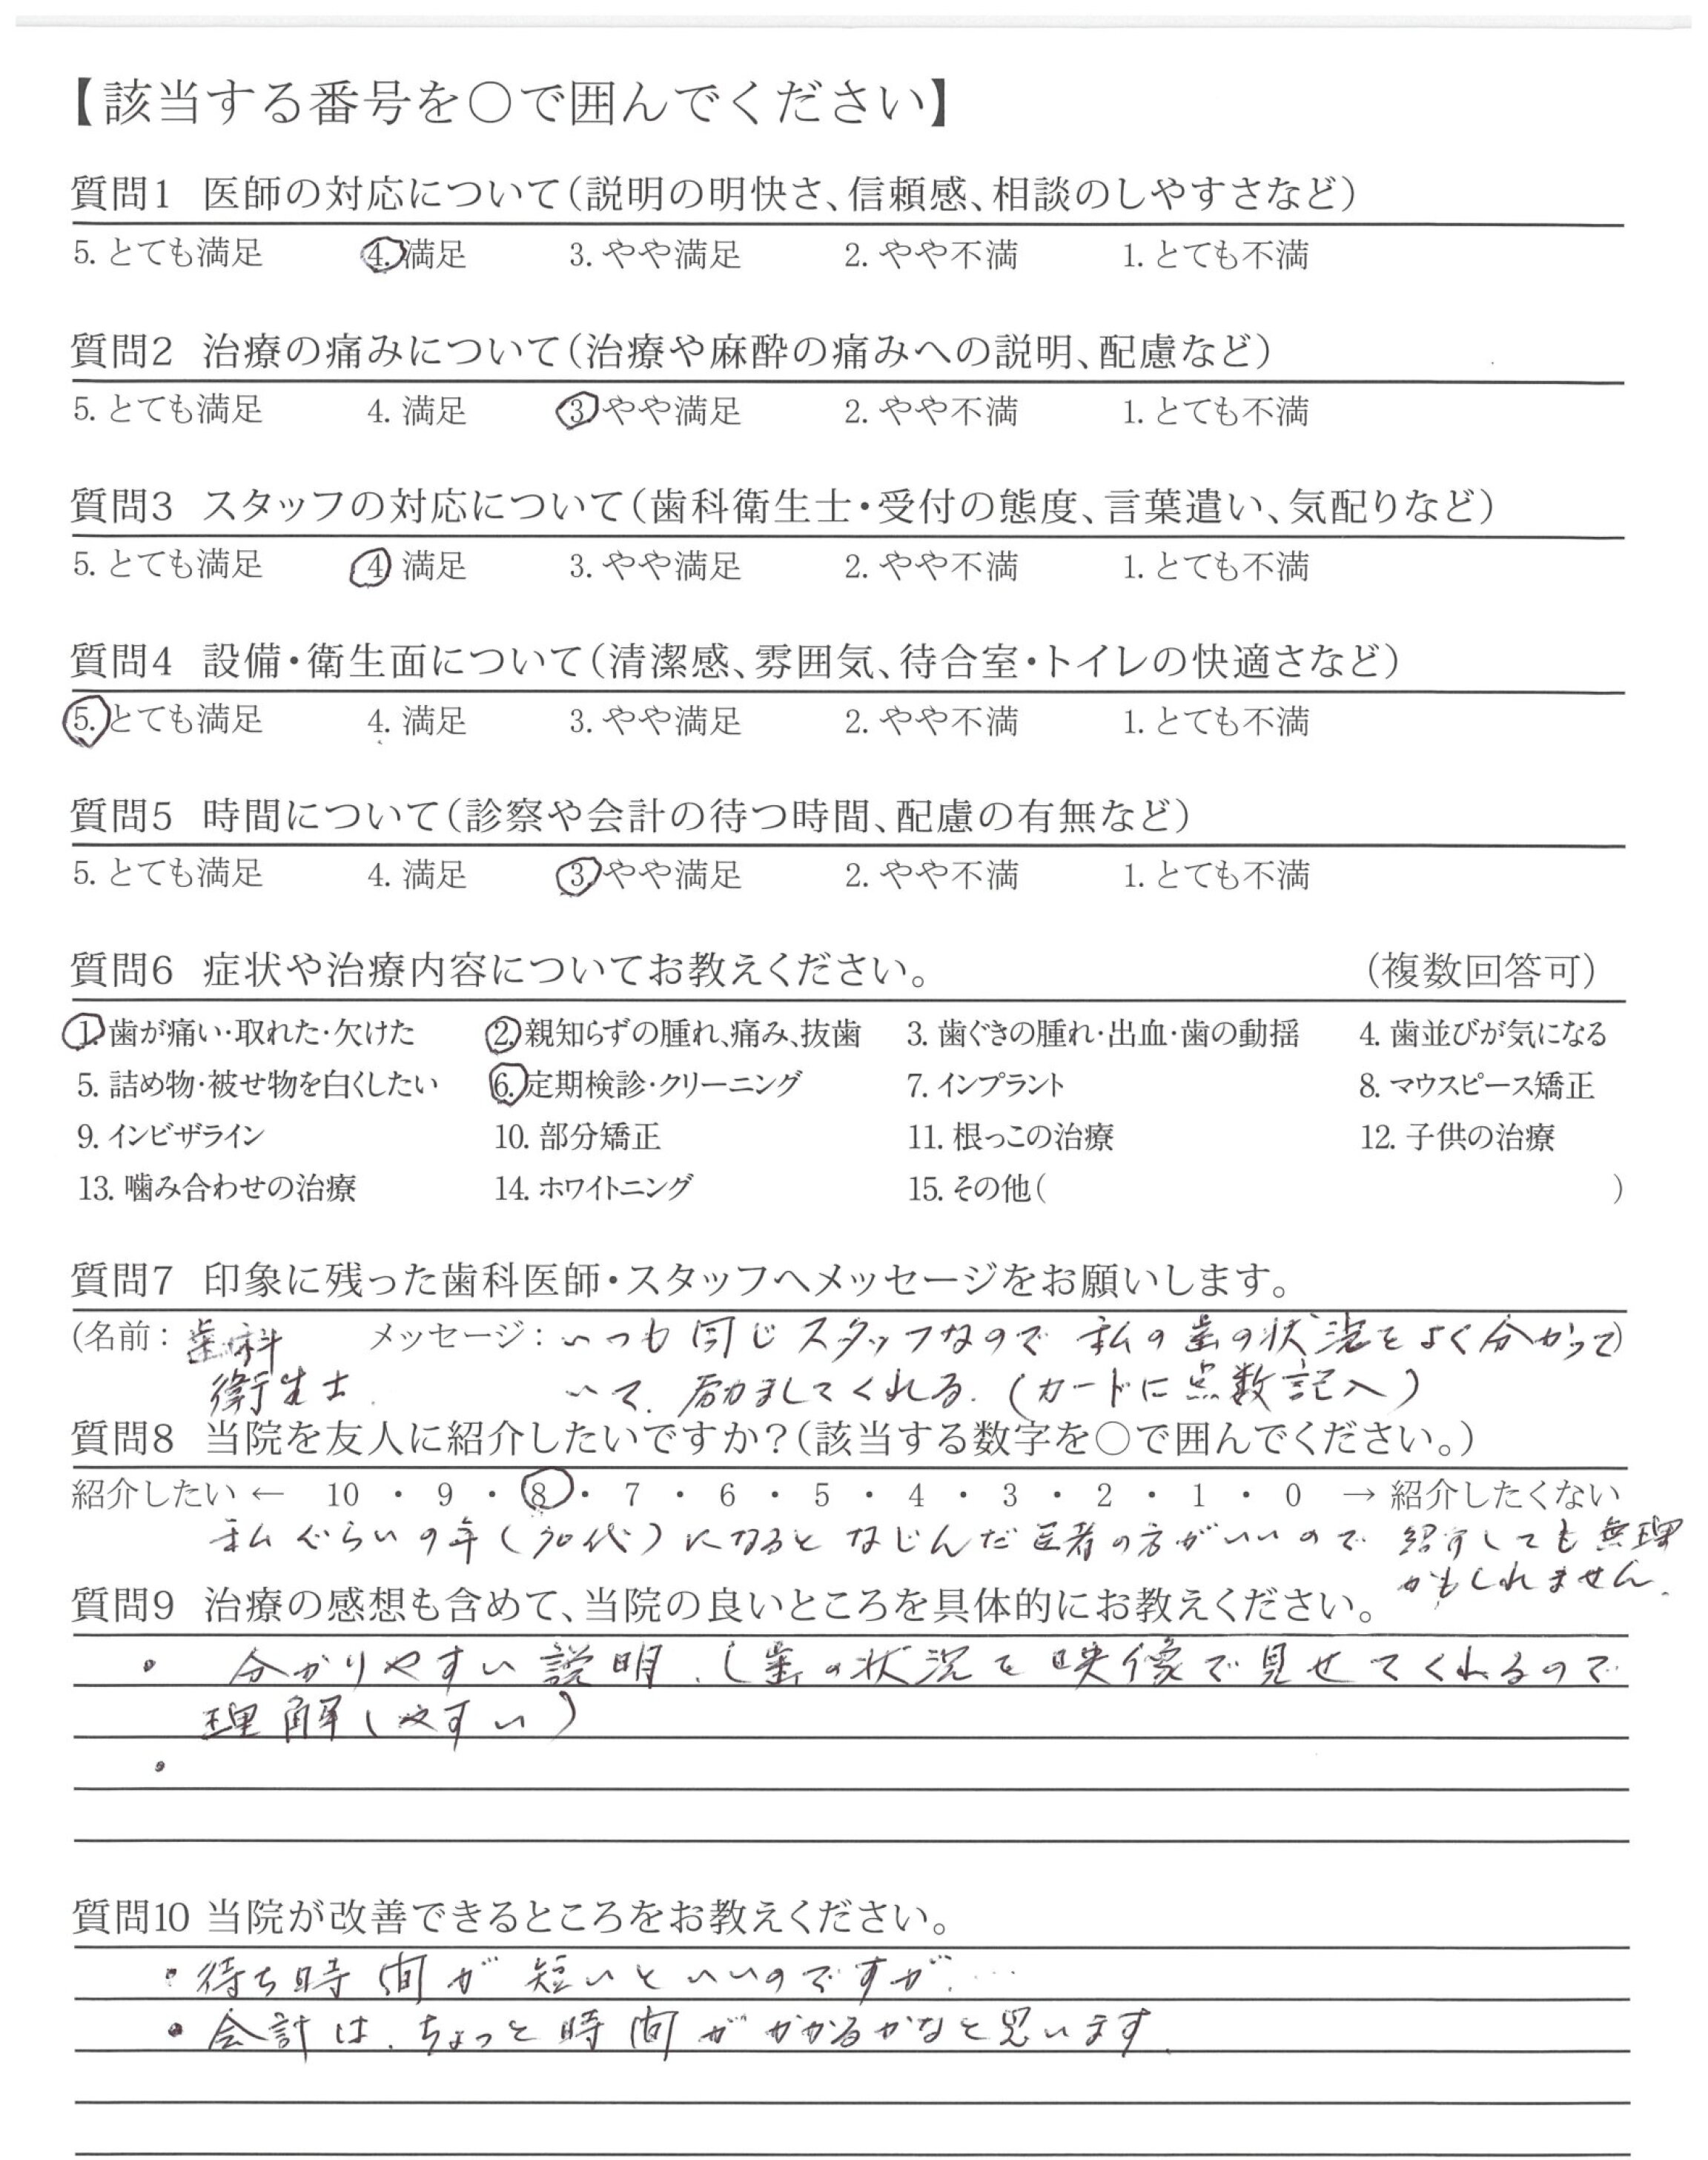 【該当する番号を○で囲んでください】
質問1 医師の対応について(説明の明快さ、信頼感、相談のしやすさなど)
5. とても満足 4. 満足 3. やや満足 2. やや不満 1. とても不満
質問2 治療の痛みについて(治療や麻酔の痛みへの説明、配慮など)
5. とても満足 4. 満足 3. やや満足 2. やや不満 1. とても不満
質問3 スタッフの対応について(歯科衛生士・受付の態度、言葉遣い、気配りなど)
5. とても満足 4 満足 3. やや満足 2. やや不満 1. とても不満
質問4 設備・衛生面について(清潔感、雰囲気、待合室・トイレの快適さなど)
5. とても満足 4. 満足 3. やや満足 2. やや不満 1. とても不満
質問5 時間について(診察や会計の待つ時間、配慮の有無など)
5. とても満足 4. 満足 3. やや満足 2. やや不満 1. とても不満
質問6 症状や治療内容についてお教えください。 (複数回答可)
1. 歯が痛い・取れた・欠けた 2. 親知らずの腫れ、痛み、抜歯 3. 歯ぐきの腫れ・出血・歯の動揺 4. 歯並びが気になる
5. 詰め物・被せ物を白くしたい 6. 定期検診・クリーニング 7. インプラント 8. マウスピース矯正
9. インビザライン 10. 部分矯正 11. 根っこの治療 12. 子供の治療
13. 噛み合わせの治療 14. ホワイトニング 15. その他( )
質問7 印象に残った歯科医師・スタッフへメッセージをお願いします。
(名前: 歯科 メッセージ: いつも同じスタッフなので 私の歯の状況をよく分かって)
衛生士. いて、励ましてくれる.(カードに点数記入)
質問8 当院を友人に紹介したいですか?(該当する数字を○で囲んでください。)
紹介したい ← 10 ・ 9 ・ 8 ・ 7 ・ 6 ・ 5 ・ 4 ・ 3 ・ 2 ・ 1 ・ 0 → 紹介したくない
私ぐらいの年(70代)になると なじんだ医者の方がいいので 紹介しても無理
かもしれません.
質問9 治療の感想も含めて、当院の良いところを具体的にお教えください。
・ 分かりやすい説明.(歯の状況を映像で見せてくれるので
理解しやすい)
・
質問10 当院が改善できるところをお教えください。
・待ち時間が短いといいのですが….
・会計は、ちょっと時間がかかるかなと思います.